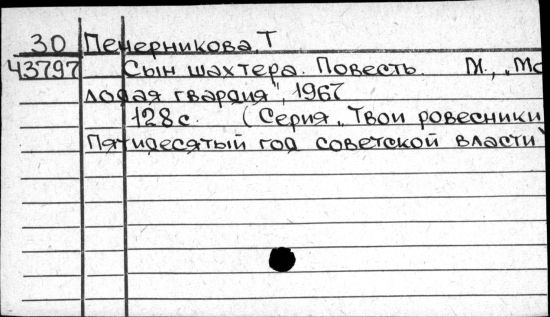 30 Печерникова, Т
43797 Сын шахтера. Повесть. М., „Мо
лодая гвардия", 1967
128 с. (Серия „Твои ровесники
Пятидесятый год советской власти"